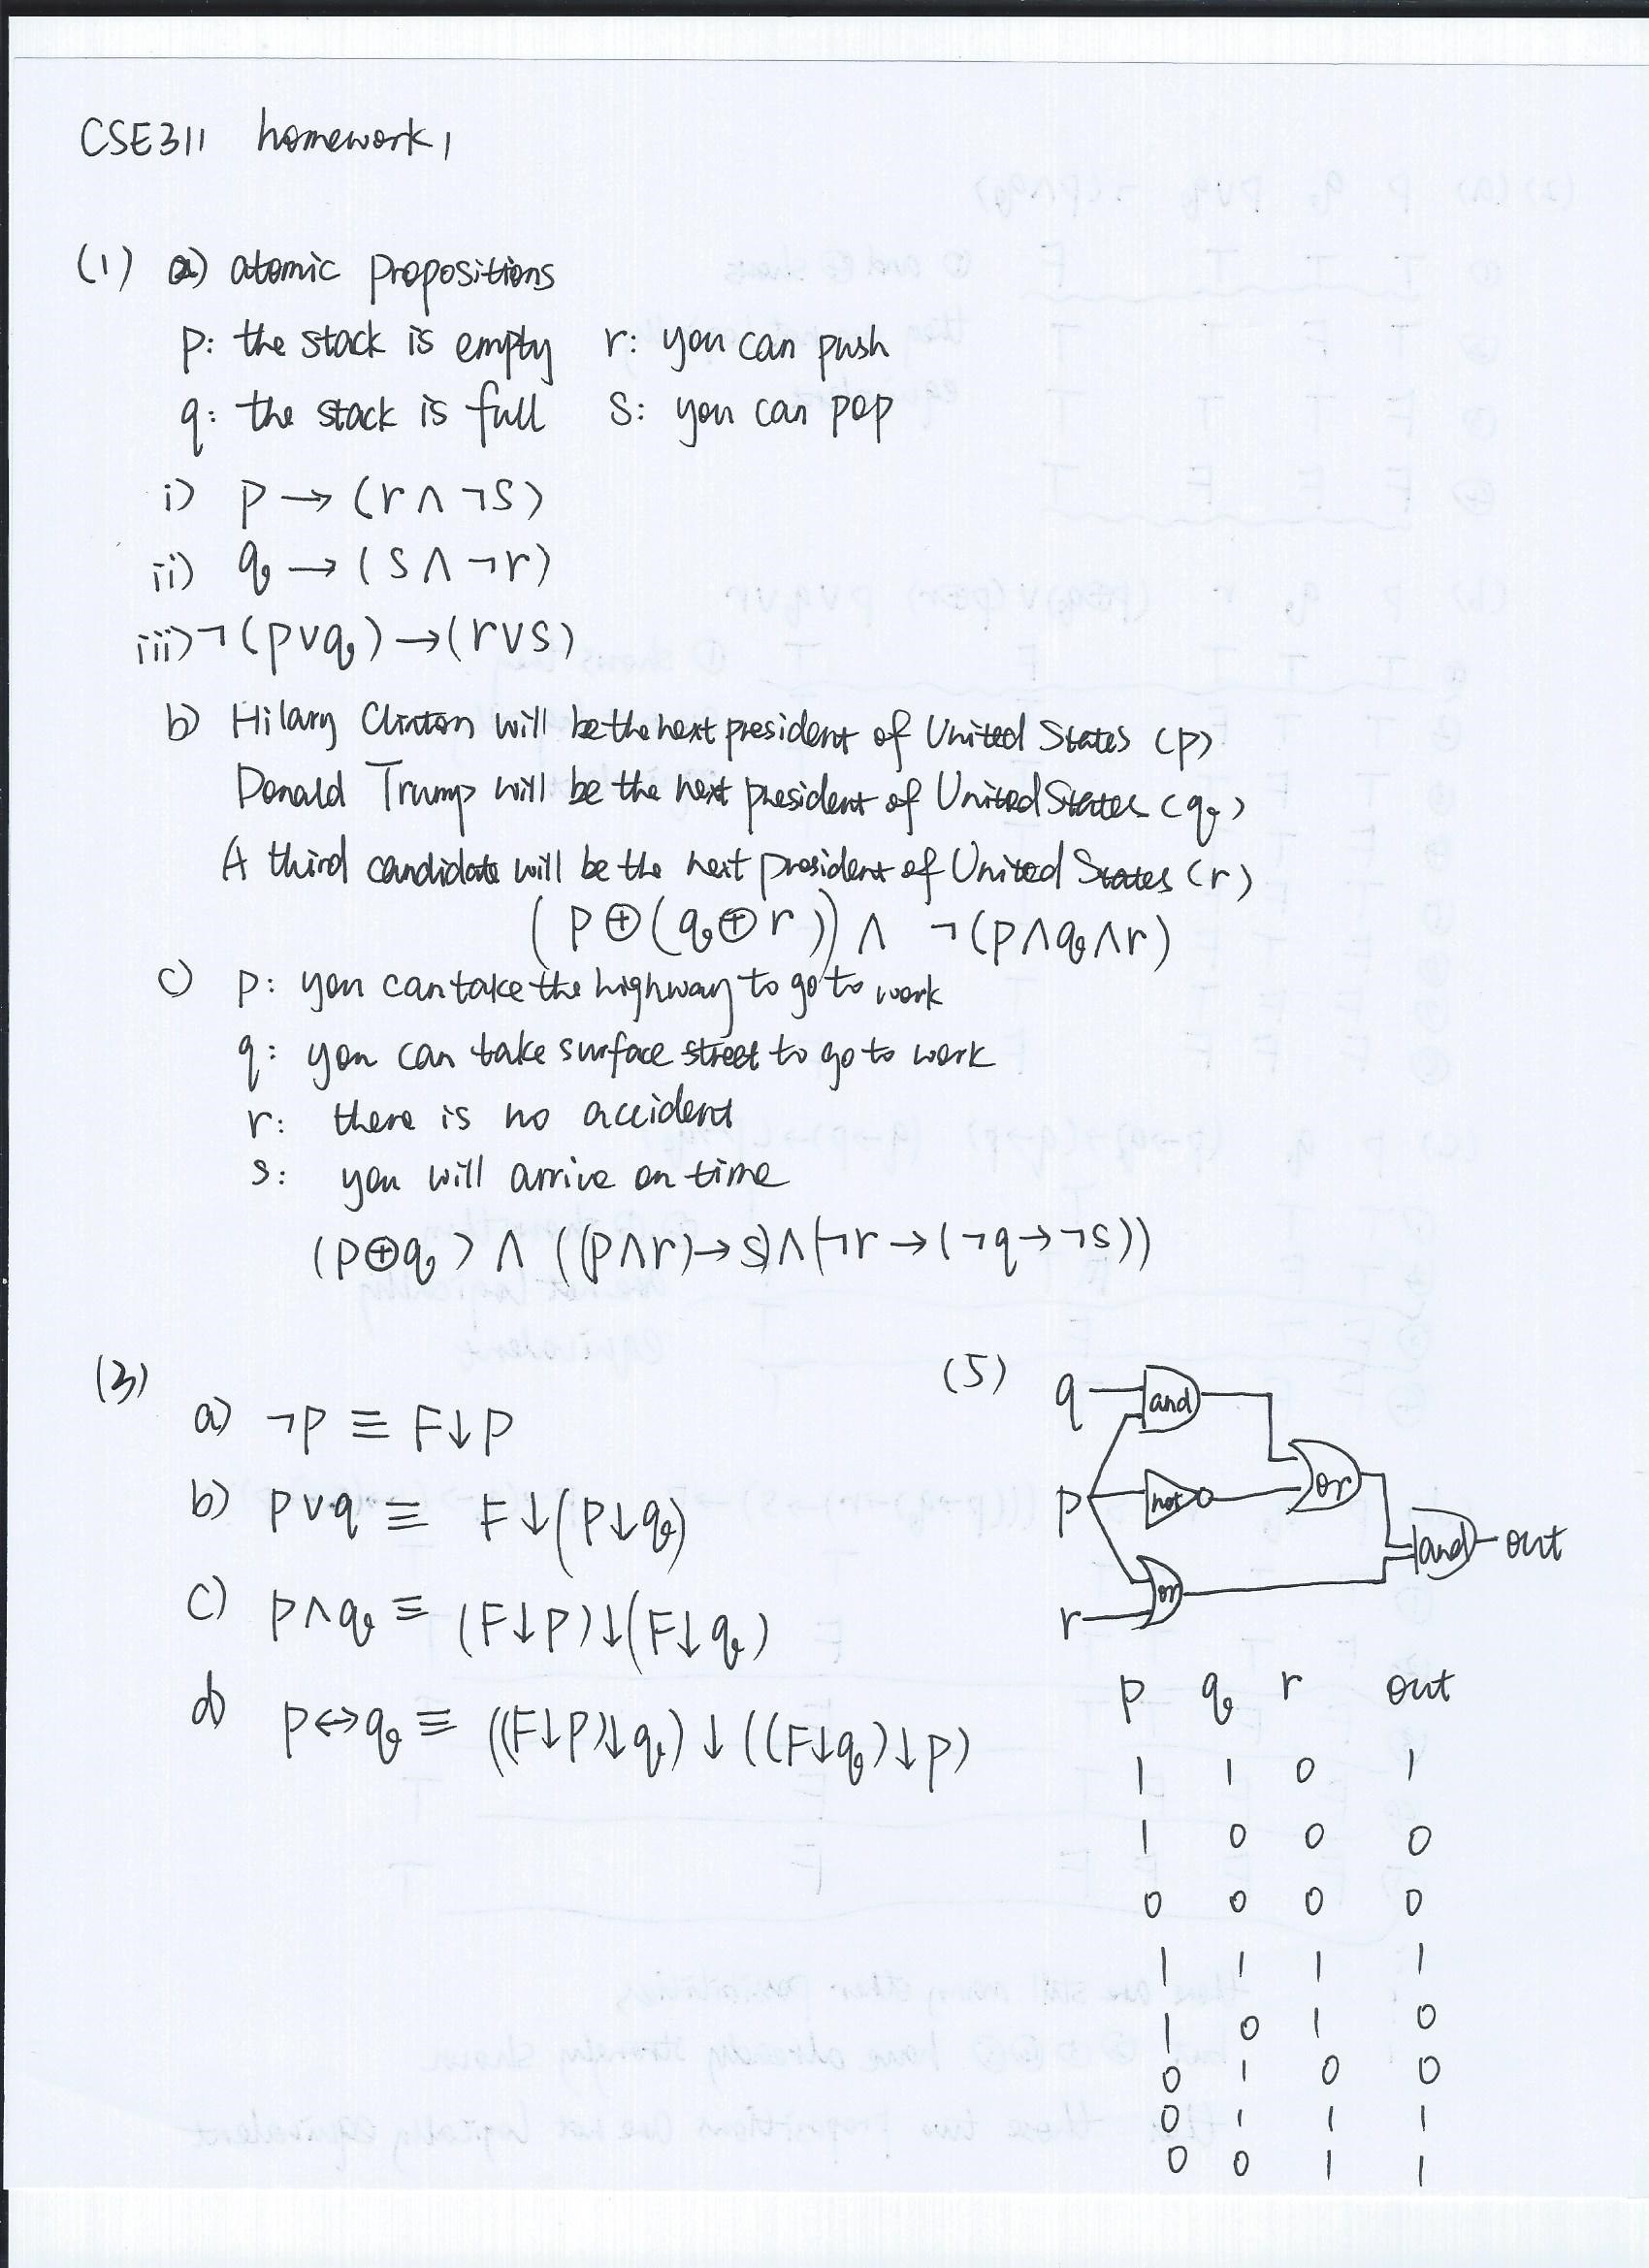 CSE311 homework 1
(1) a) atomic propositions
p: the stack is empty r: you can push
q: the stack is full s: you can pop
i) p → (r ∧ ¬s)
ii) q → (s ∧ ¬r)
iii) ¬(p∨q) → (r∨s)
b) Hilary Clinton will be the next president of United States (p)
Donald Trump will be the next president of United States (q)
A third candidate will be the next president of United States (r)
(p⊕(q⊕r)) ∧ ¬(p∧q∧r)
c) p: you can take the highway to go to work
q: you can take surface street to go to work
r: there is no accident
s: you will arrive on time
(p⊕q) ∧ ((p∧r)→s)∧(¬r→(¬q→¬s))
(3)
a) ¬p ≡ F↓p
b) p∨q ≡ F↓(p↓q)
c) p∧q ≡ (F↓p)↓(F↓q)
d) p↔q ≡ ((F↓p)↓q)↓((F↓q)↓p)
(5)
q and
p not or and out
r or
p q r out
1 1 0 1
1 0 0 0
0 0 0 0
1 1 1 1
1 0 1 0
0 1 0 0
0 1 1 1
0 0 1 1